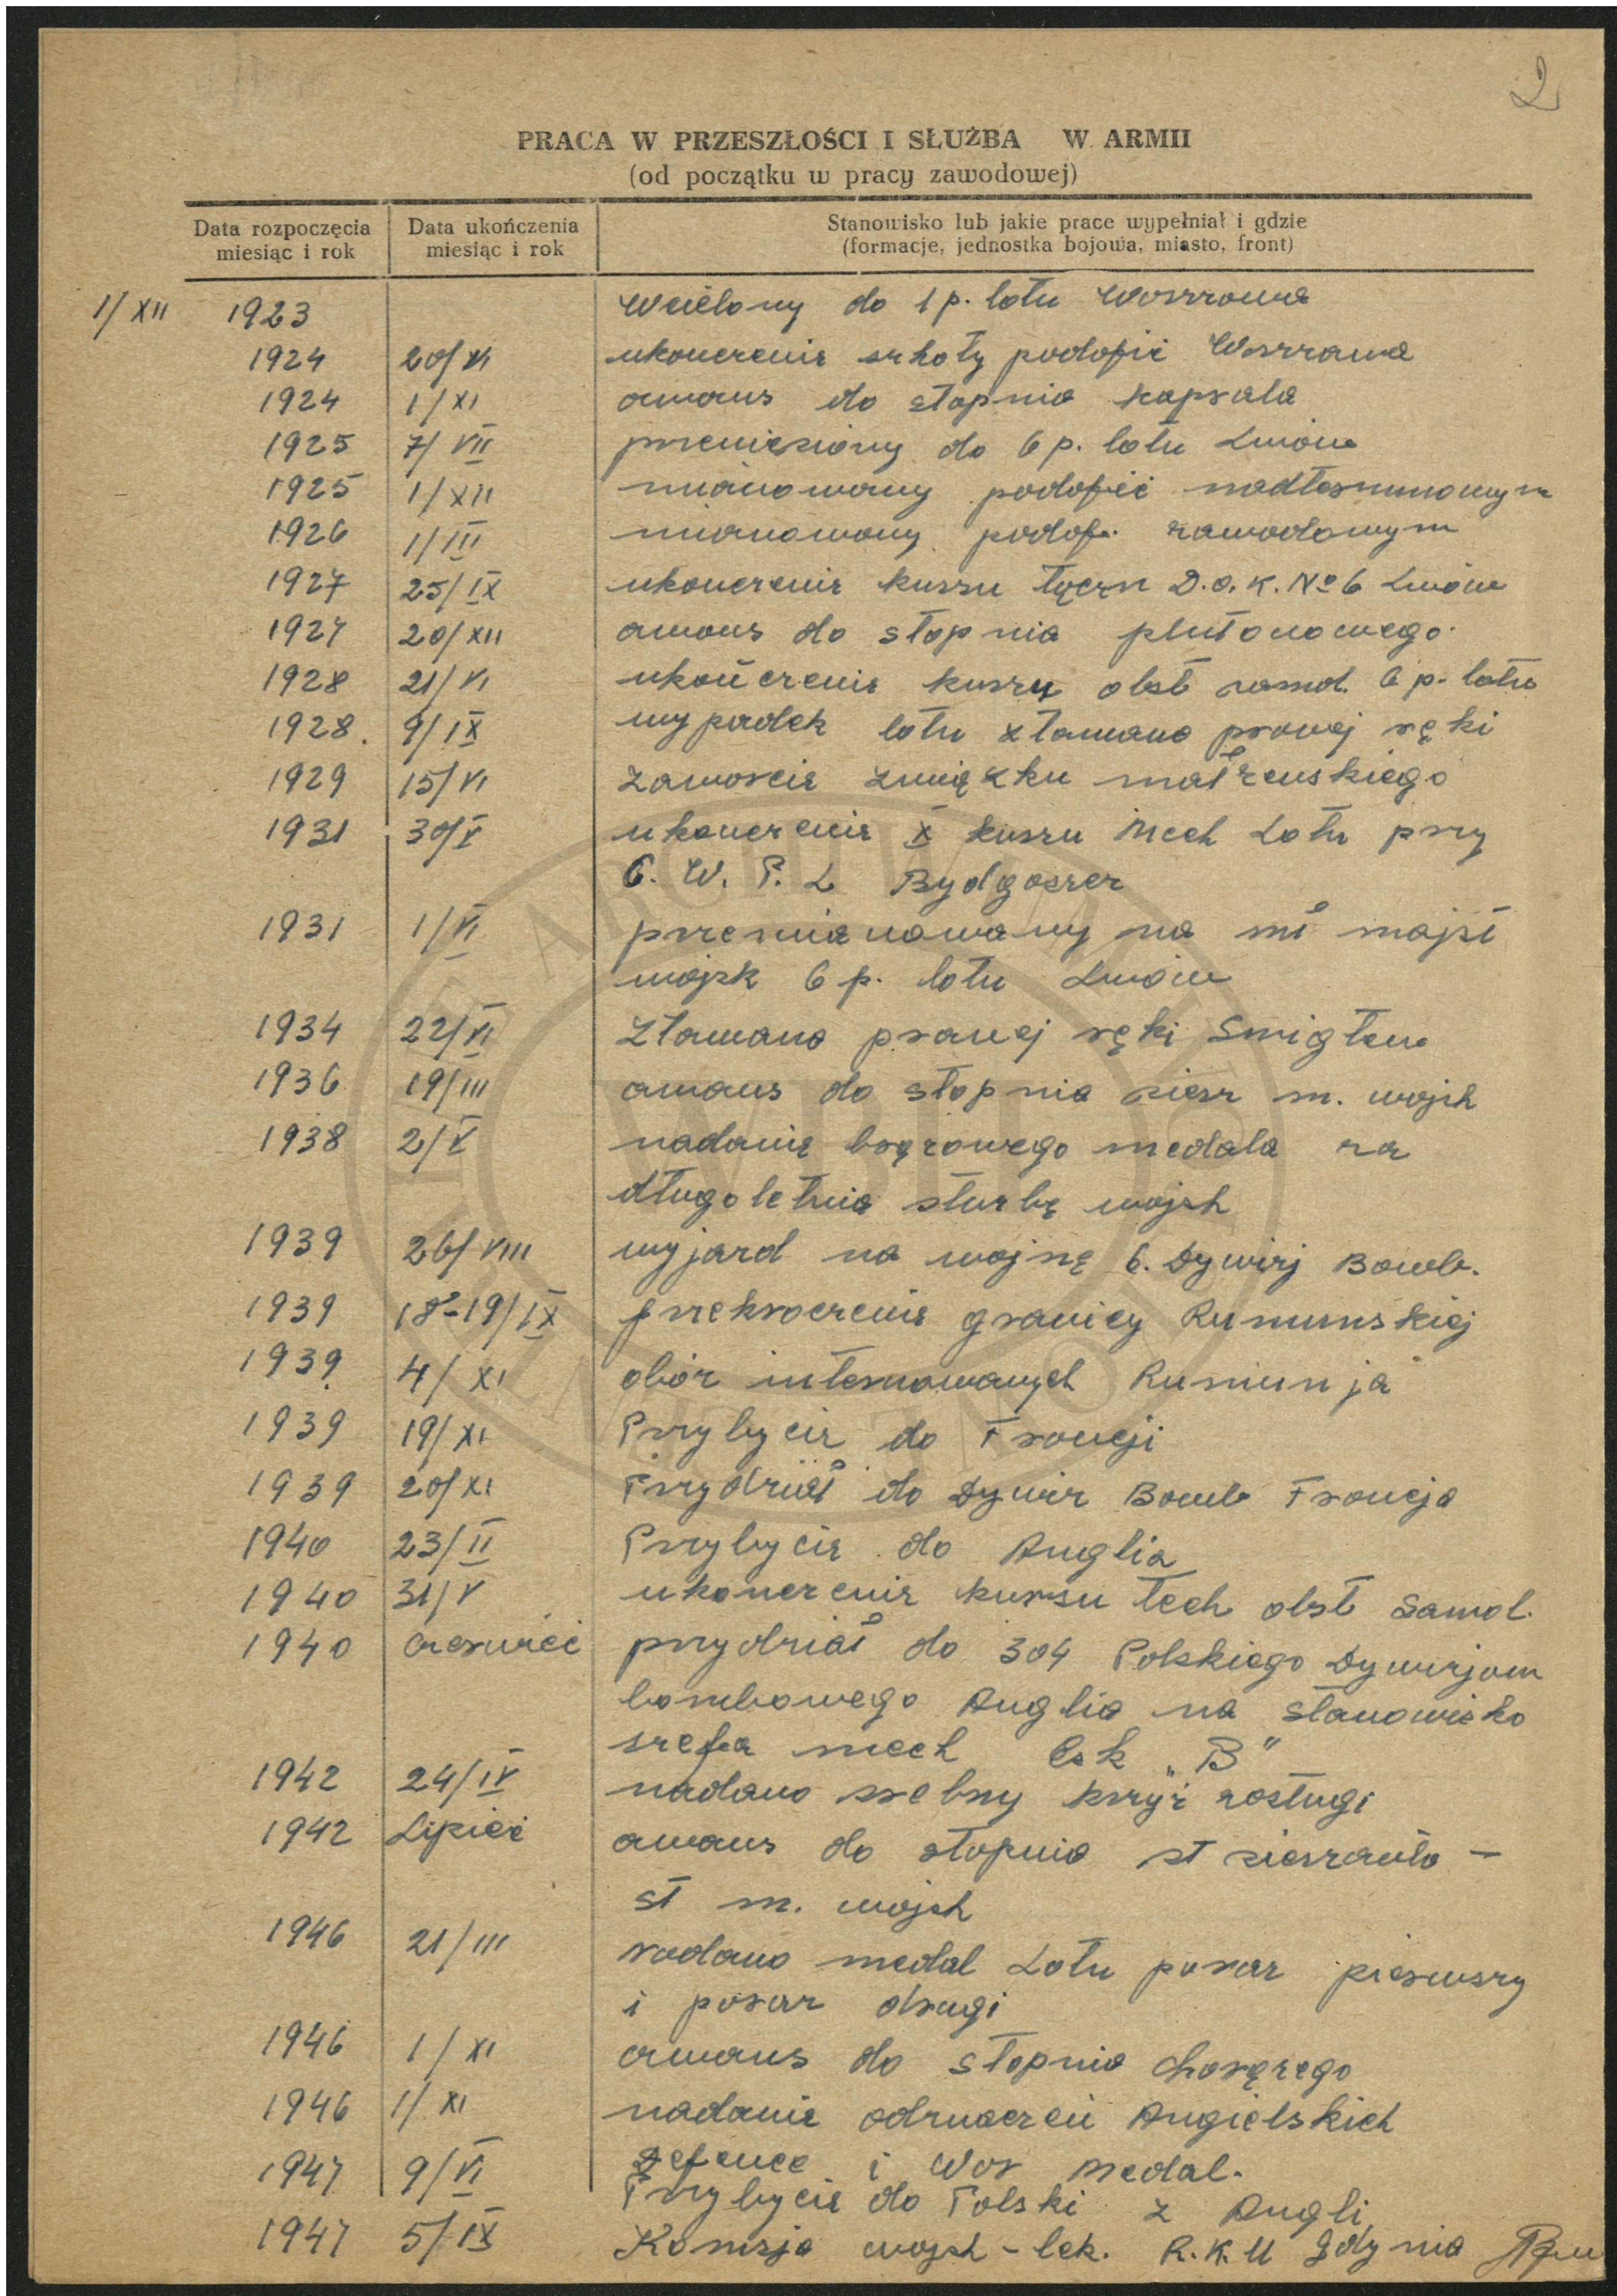 2
PRACA W PRZESZŁOŚCI I SŁUŻBA W ARMII
(od początku w pracy zawodowej)
Data rozpoczęcia miesiąc i rok
Data ukończenia miesiąc i rok
Stanowisko lub jakie prace wypełniał i gdzie
(formacje, jednostka bojowa, miasto, front)
1/XII 1923 Wcielony do 1 p. lotn Warszawa
1924 20/VI ukonczenie szkoły podofic Warszawa
1924 1/XI awans do stopnia kaprala
1925 7/VII przeniesiony do 6 p. lotn Lwów
1925 1/XII mianowany podofic nadterminowym
1926 1/III mianowany podof. zawodowym
1927 25/IX ukonczenie kursu łączn D.O.K. No 6 Lwów
1927 20/XII awans do stopnia plutonowego.
1928 21/VI ukończenie kursu obsł samol. 6 p. lotn
1928. 9/IX wypadek lotn złamano prawej ręki
1929 15/VI zawarcie związku małżenskiego
1931 30/V ukonczenie X kursu Mech Lotn przy
C. W. P. L Bydgoszcz
1931 1/VI przemianowany na mł majst
wojsk 6 p. lotn Lwów
1934 22/VI Złamano prawej ręki Smigłem
1936 19/III awans do stopnia sierz m. wojsk
1938 2/V nadanie brązowego medala za
długoletnia służbę wojsk
1939 26/VIII wyjazd na wojnę 6. Dywizj Bomb.
1939 18-19/IX przekroczenie granicy Rumunskiej
1939 4/XI obóz internowanych Rumunja
1939 19/XI Przybycie do Francji
1939 20/XI Przydział do Dywiz Bomb Francja
1940 23/II Przybycie do Anglia
1940 31/V ukonczenie kursu tech obsł Samol.
1940 czerwiec przydział do 304 Polskiego Dywizjom
bombowego Anglia na stanowisko
szefa mech Esk „B"
1942 24/IV nadano srebny krzyż zasługi
1942 Lipiec awans do stopnia st sierzanta –
st m. wojsk
1946 21/III nadano medal Lotn poraz pierwszy
i poraz drugi
1946 1/XI awans do stopnia chorążego
1946 1/XI nadanie odznaczeń Angielskich
Defence i War Medal.
1947 9/VI Przybycie do Polski z Angli
1947 5/IX Komisja wojsk – lek. R.K.U Gdynia